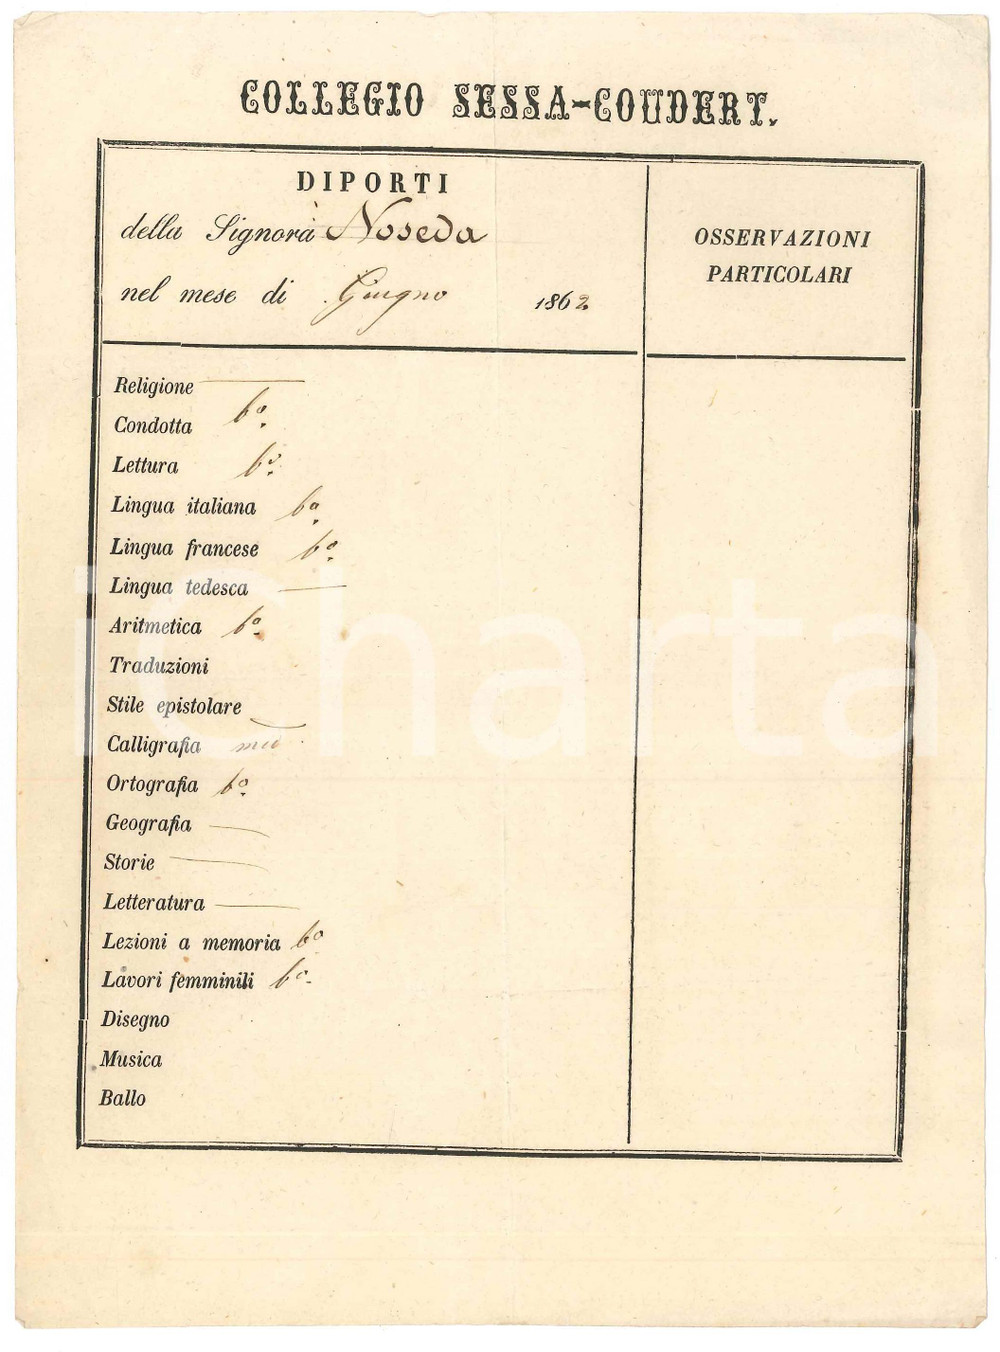 COLLEGIO SESSA-COUDERT.
DIPORTI
della Signora Noseda
nel mese di Giugno 1862
OSSERVAZIONI
PARTICOLARI
Religione —
Condotta bº.
Lettura bº.
Lingua italiana bº.
Lingua francese bº.
Lingua tedesca —
Aritmetica bº.
Traduzioni
Stile epistolare
Calligrafia med.
Ortografia bº.
Geografia —
Storie —
Letteratura —
Lezioni a memoria bº
Lavori femminili bº.
Disegno
Musica
Ballo
iCharta